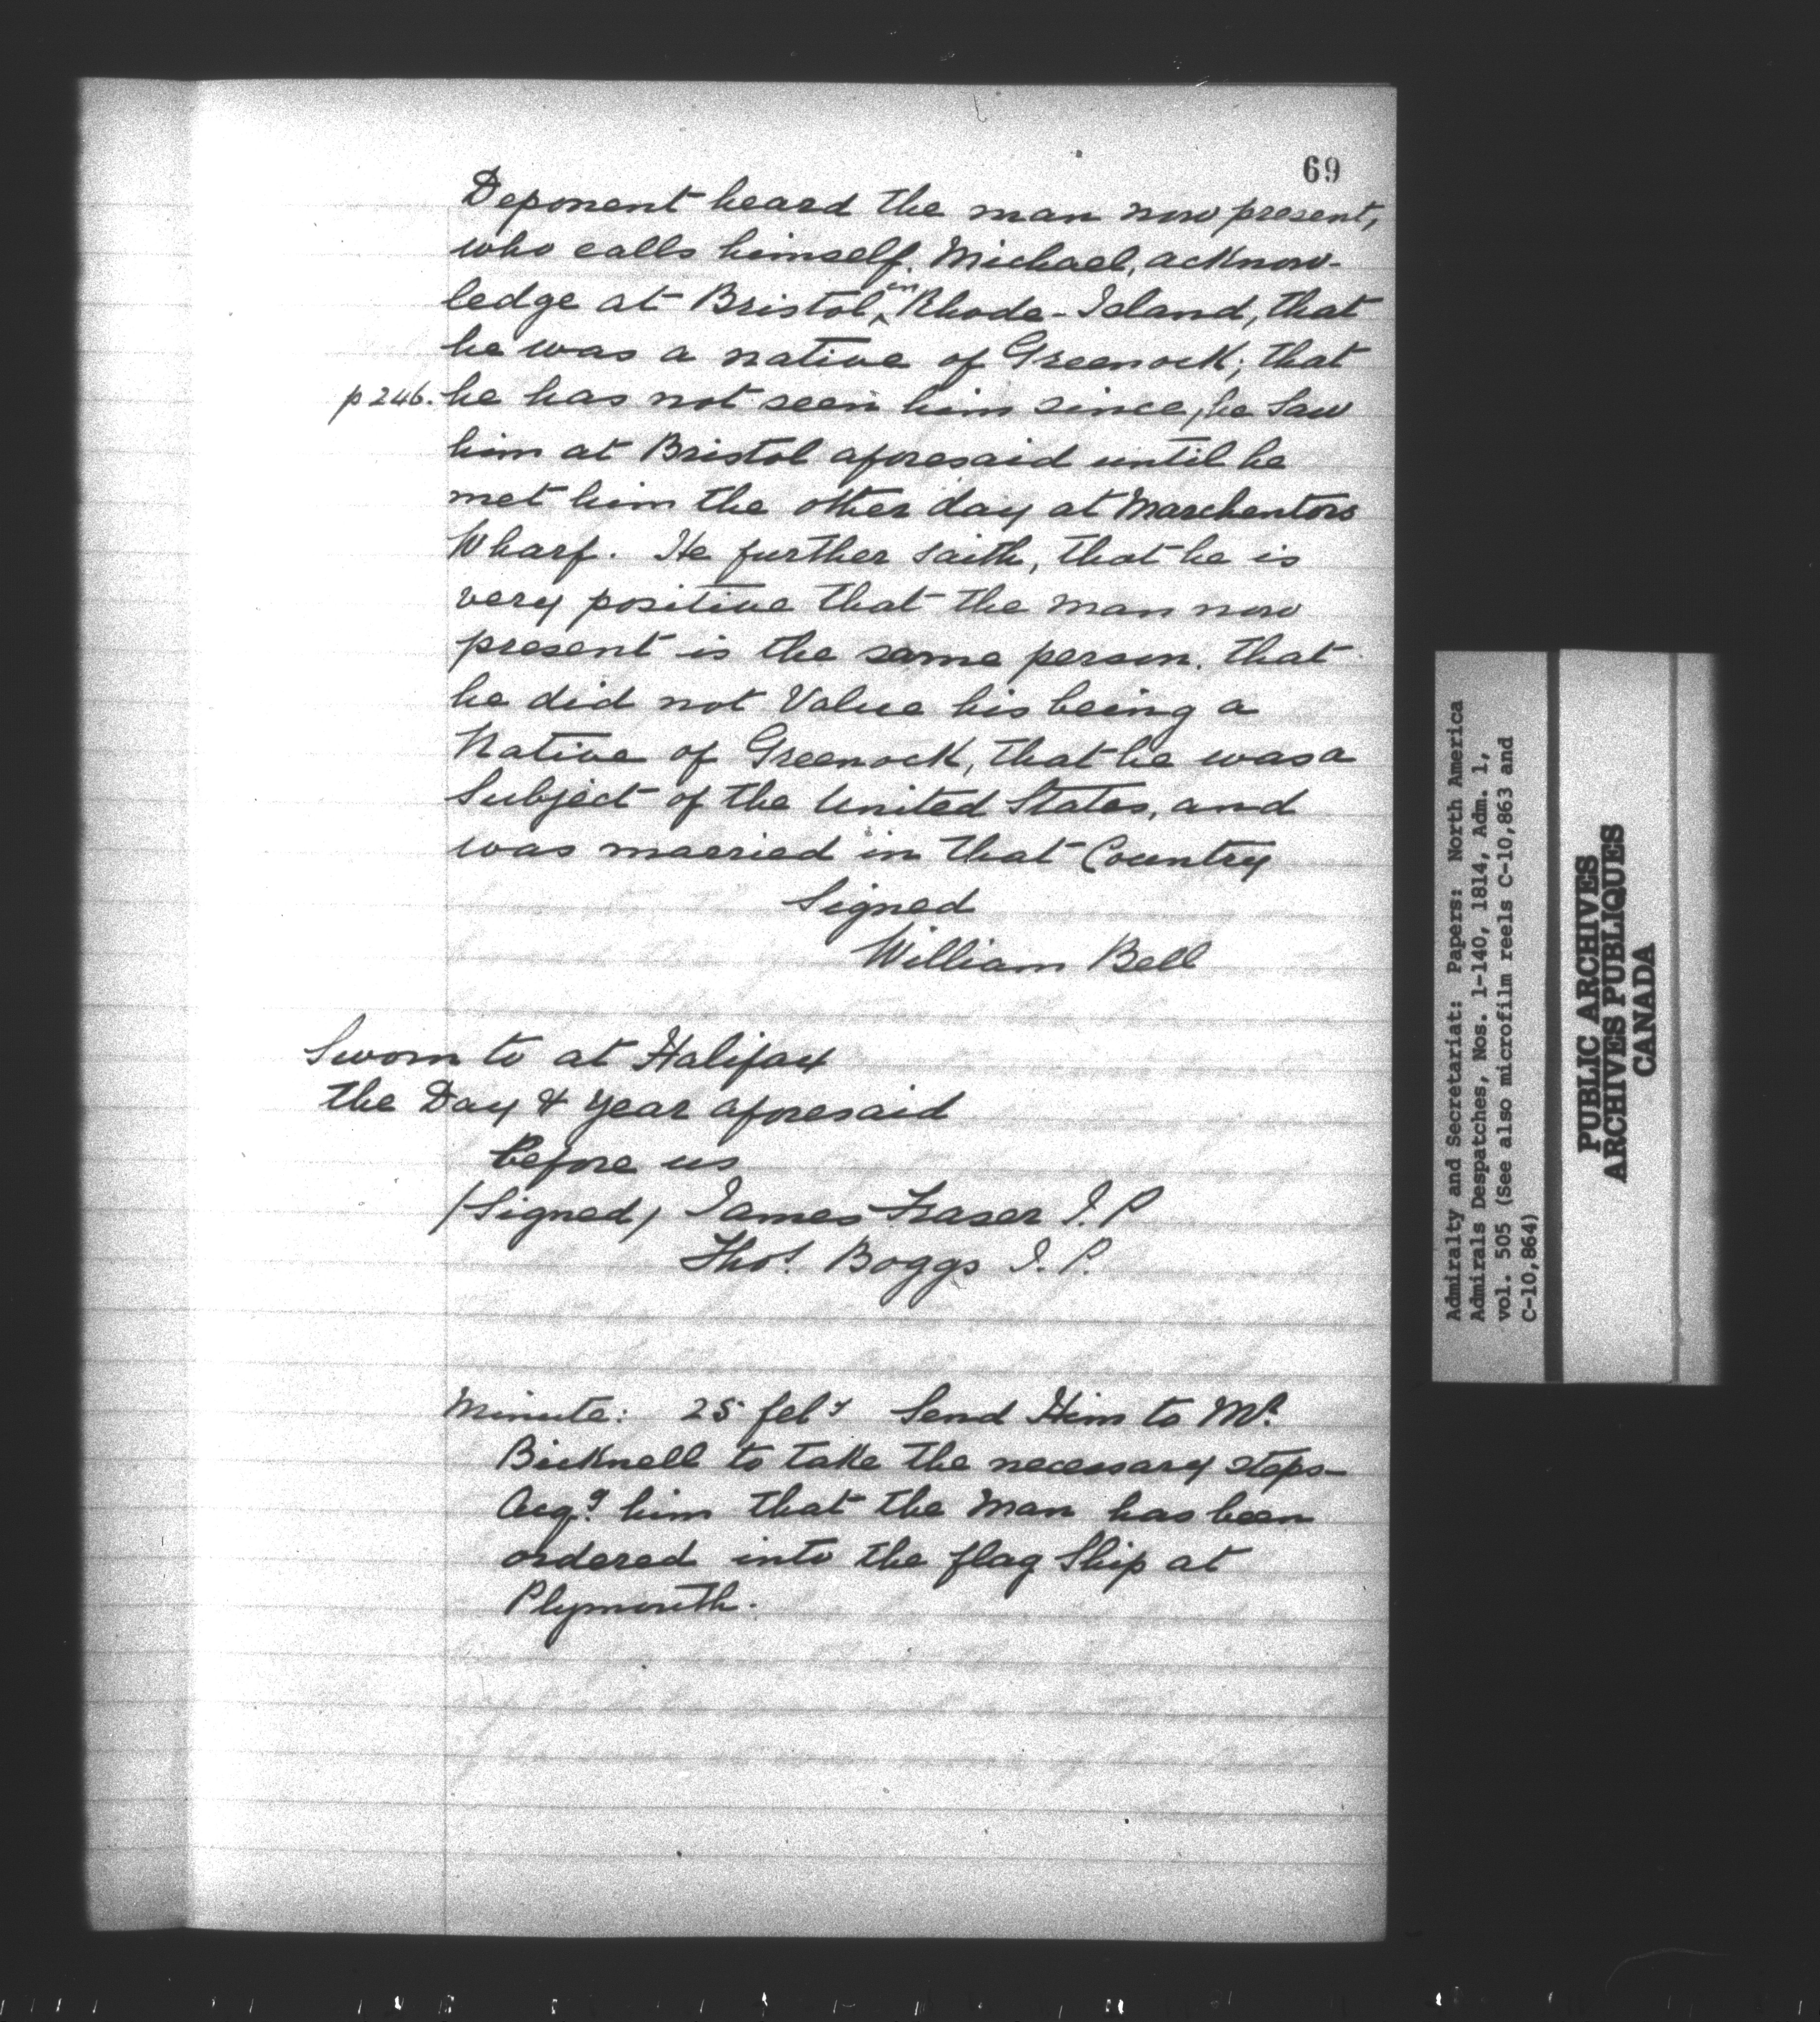 69
Deponent heard the man now present,
who calls himself, Michael, acknow-
ledge at Bristol, in Rhode-Island, that
he was a native of Greenock; that
p 246. he has not seen him since, he saw
him at Bristol aforesaid until he
met him the other day at Marchentors
Wharf. He further saith, that he is
very positive that the man now
present is the same person. that
he did not Value his being a
Native of Greenock, that he was a
Subject of the United States, and
was married in that Country
Signed
William Bell
Sworn to at Halifax
the Day & Year aforesaid
Before us
(Signed) James Fraser J.P
Thos. Boggs J.P.
Minute: 25 feby Send Him to Mr.
Bicknell to take the necessary steps—
him that the Man has been
ordered into the flag Ship at
Plymouth.
Admiralty and Secretariat: Papers: North America
Admirals Despatches, Nos. 1-140, 1814, Adm. 1,
vol. 505 (See also microfilm reels C-10,863 and
C-10,864)
PUBLIC ARCHIVES
ARCHIVES PUBLIQUES
CANADA